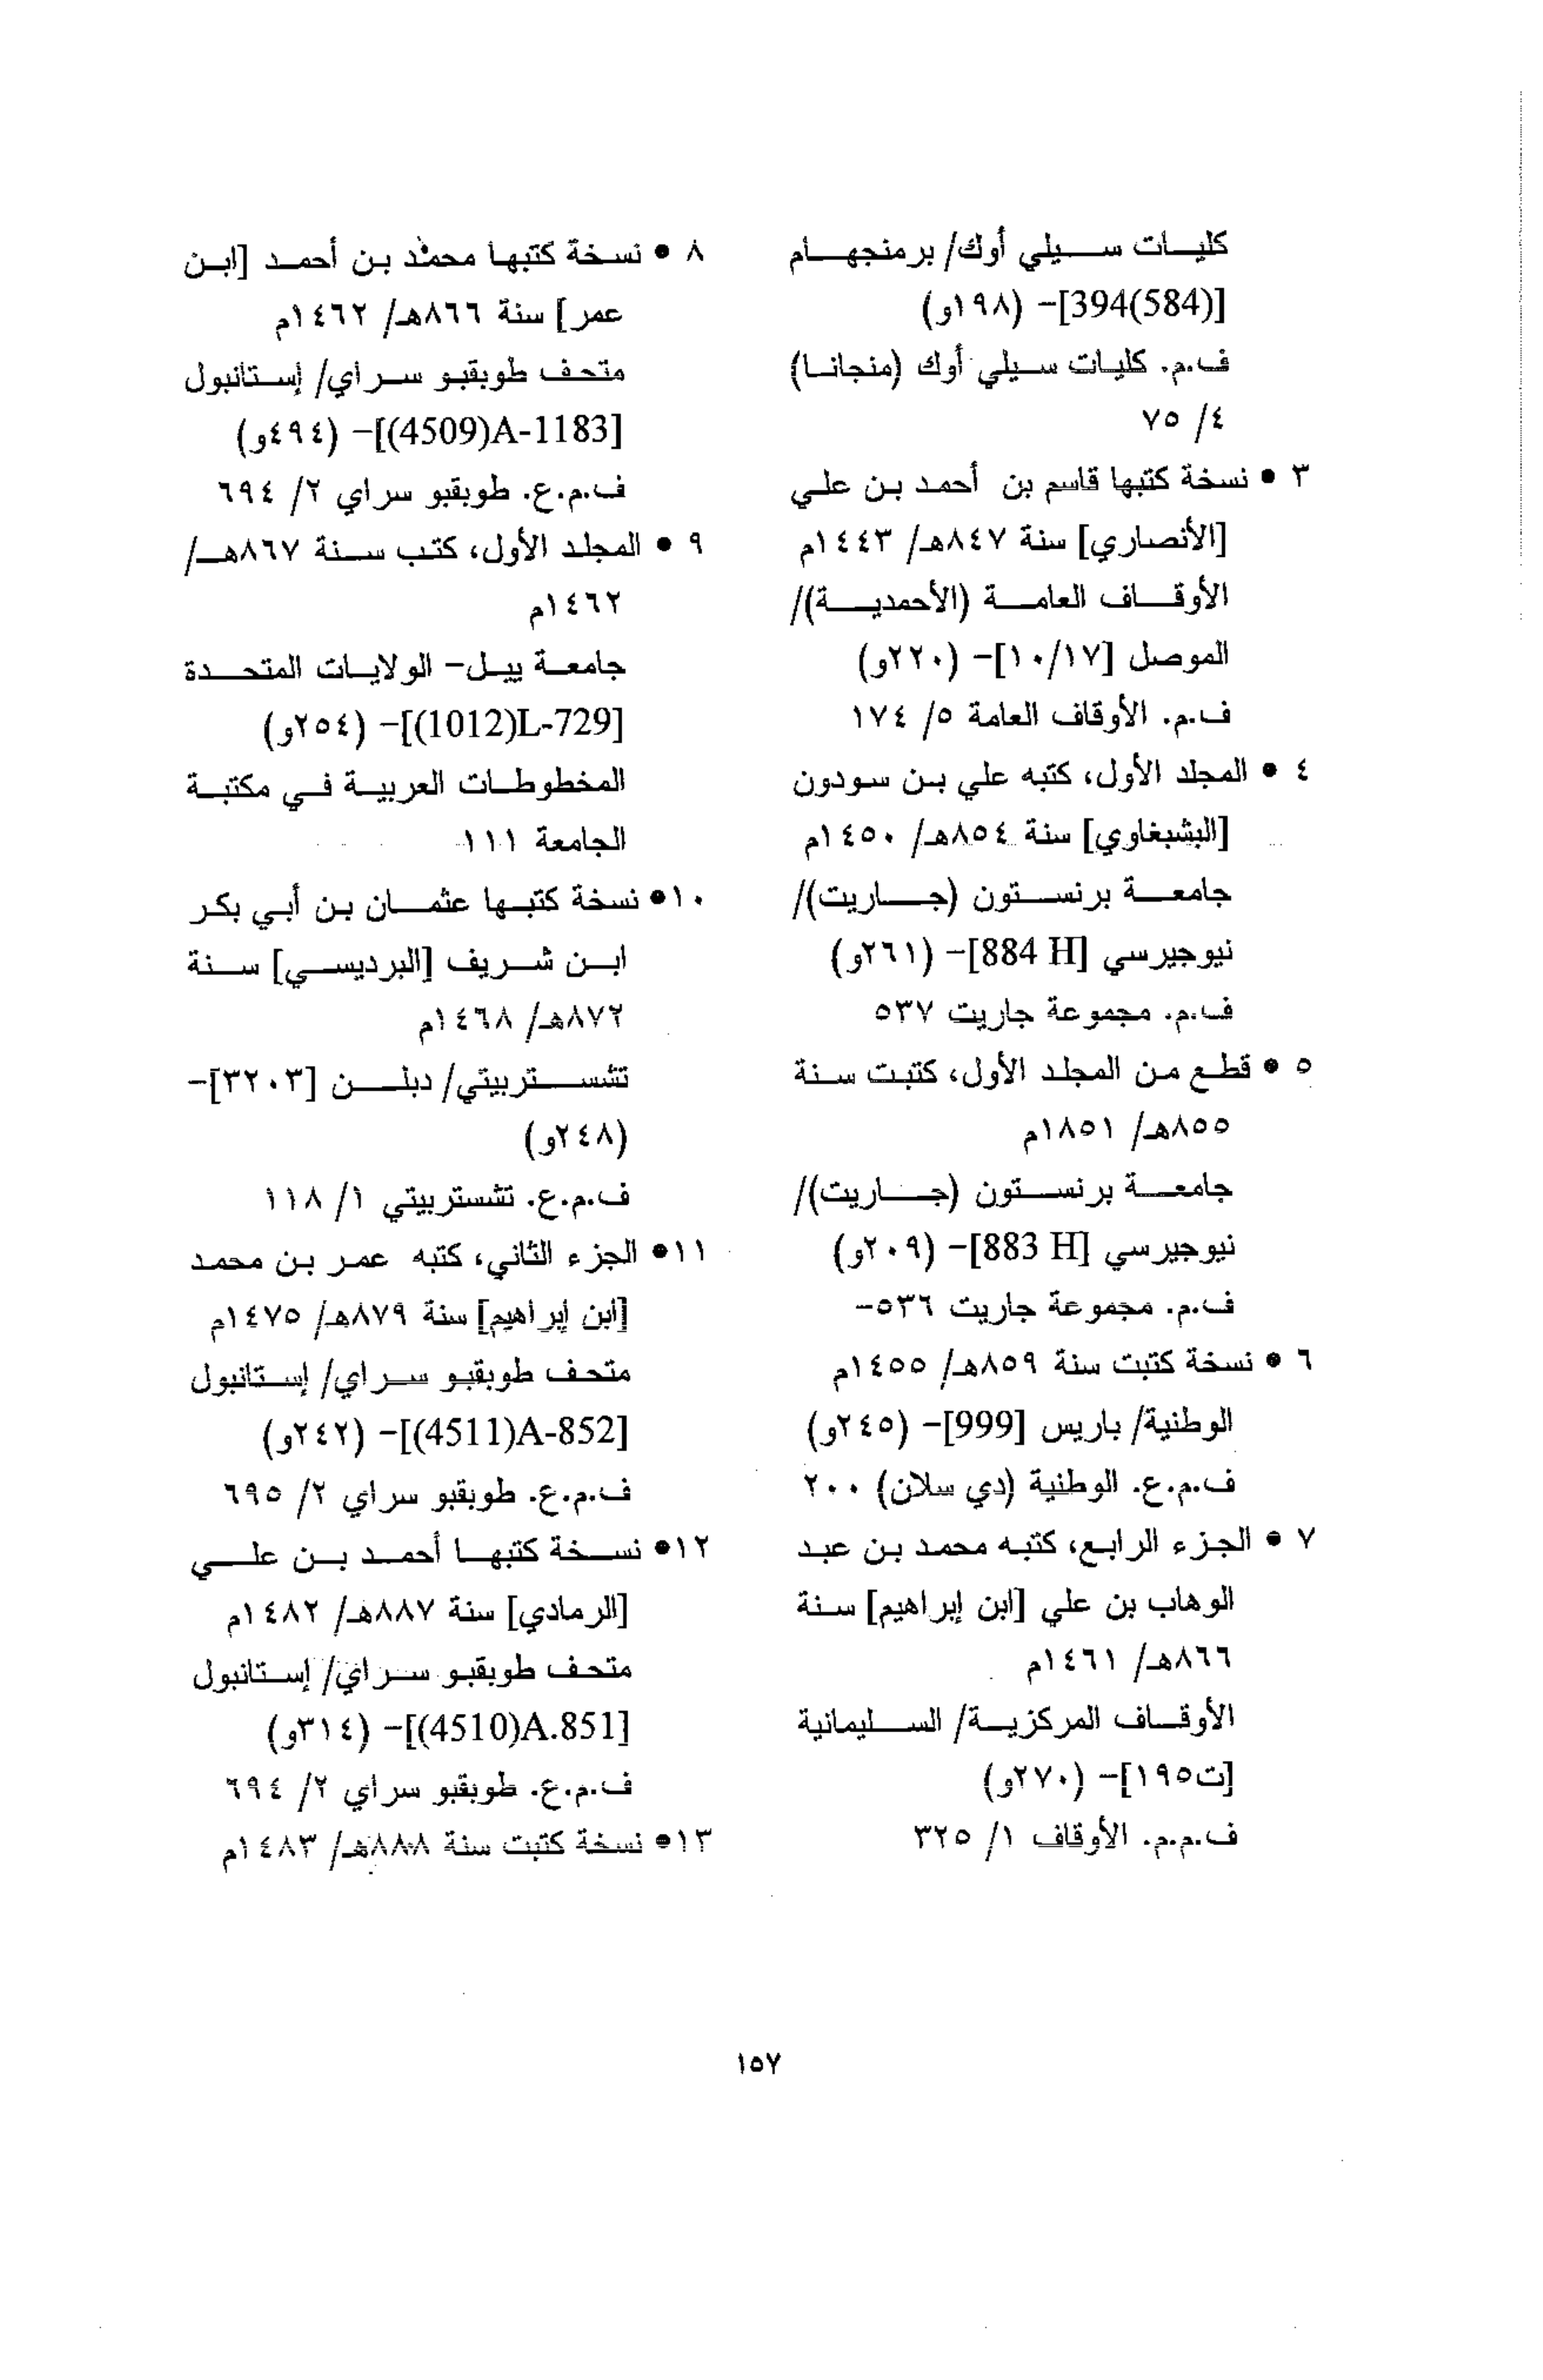 كليات سيلي أوك/ برمنجهام
[394(584)]- (١٩٨و)
ف.م. كليات سيلي أوك (منجانا)
٤/ ٧٥
٣ • نسخة كتبها قاسم بن أحمد بن علي
[الأنصاري] سنة ٨٤٧هـ/ ١٤٤٣م
الأوقاف العامة (الأحمدية)/
الموصل [١٠/١٧]- (٢٢٠و)
ف.م. الأوقاف العامة ٥/ ١٧٤
٤ • المجلد الأول، كتبه علي بن سودون
[البشبغاوي] سنة ٨٥٤هـ/ ١٤٥٠م
جامعة برنستون (جاريت)/
نيوجيرسي [884 H]- (٢٦١و)
ف.م. مجموعة جاريت ٥٣٧
٥ • قطع من المجلد الأول، كتبت سنة
٨٥٥هـ/ ١٨٥١م
جامعة برنستون (جاريت)/
نيوجيرسي [883 H]- (٢٠٩و)
ف.م. مجموعة جاريت ٥٣٦-
٦ • نسخة كتبت سنة ٨٥٩هـ/ ١٤٥٥م
الوطنية/ باريس [999]- (٢٤٥و)
ف.م.ع. الوطنية (دي سلان) ٢٠٠
٧ • الجزء الرابع، كتبه محمد بن عبد
الوهاب بن علي [ابن إبراهيم] سنة
٨٦٦هـ/ ١٤٦١م
الأوقاف المركزية/ السليمانية
[ت١٩٥]- (٢٧٠و)
ف.م.م. الأوقاف ١/ ٣٢٥
٨ • نسخة كتبها محمد بن أحمد [ابن
عمر] سنة ٨٦٦هـ/ ١٤٦٢م
متحف طوبقبو سراي/ إستانبول
[4509)A-1183)]- (٤٩٤و)
ف.م.ع. طوبقبو سراي ٢/ ٦٩٤
٩ • المجلد الأول، كتب سنة ٨٦٧هـ/
١٤٦٢م
جامعة ييل- الولايات المتحدة
[1012)L-729)]- (٢٥٤و)
المخطوطات العربية في مكتبة
الجامعة ١١١
١٠• نسخة كتبها عثمان بن أبي بكر
ابن شريف [البرديسي] سنة
٨٧٢هـ/ ١٤٦٨م
تشستربيتي/ دبلن [٣٢٠٣]-
(٢٤٨و)
ف.م.ع. تشستربيتي ١/ ١١٨
١١• الجزء الثاني، كتبه عمر بن محمد
[ابن إبراهيم] سنة ٨٧٩هـ/ ١٤٧٥م
متحف طوبقبو سراي/ إستانبول
[4511)A-852)]- (٢٤٢و)
ف.م.ع. طوبقبو سراي ٢/ ٦٩٥
١٢• نسخة كتبها أحمد بن علي
[الرمادي] سنة ٨٨٧هـ/ ١٤٨٢م
متحف طوبقبو سراي/ إستانبول
[4510)A.851)]- (٣١٤و)
ف.م.ع. طوبقبو سراي ٢/ ٦٩٤
١٣• نسخة كتبت سنة ٨٨٨هـ/ ١٤٨٣م
١٥٧